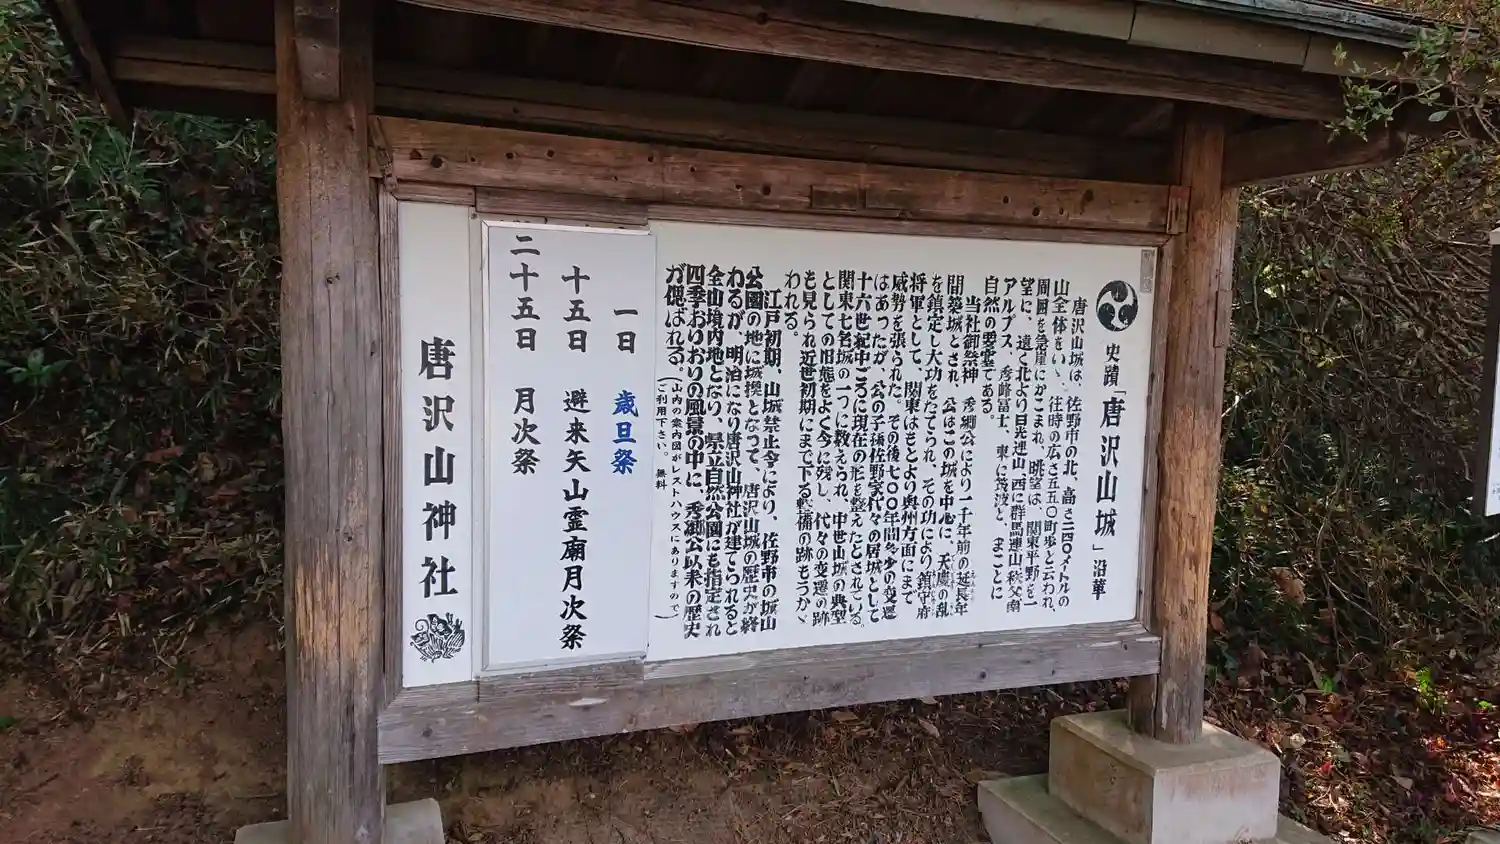 史蹟「唐沢山城」沿革
唐沢山城は、佐野市の北、高さ二四〇メートルの
山全体をいゝ、往時の広さ五五〇町歩と云われ、
周囲を急崖にかこまれ、眺望は、関東平野を一
望に、遠く北より日光連山、西に群馬連山、秩父南
アルプス、秀峰富士、東に筑波と、まことに
自然の要害である。
当社御祭神 秀郷公により一千年前の延長年
間築城とされ 公はこの城を中心に、天慶の乱
を鎮定し大功をたてられ、その功により鎮守府
将軍として、関東はもとより奥州方面にまで
威勢を張られた。その後七〇〇年間多少の変遷
はあったが、公の子孫佐野家代々の居城として
十六世紀中ごろに現在の形を整えたとされている。
関東七名城の一つに数えられ、中世山城の典型
としての旧態をよく今に残し、代々の変遷の跡
も見られ近世初期にまで下る修補の跡もうかゞ
われる。
江戸初期、山城禁止令により、佐野市の城山
公園の地に城換となって、唐沢山城の歴史が終
わるが、明治になり唐沢山神社が建てられると
全山境内地となり、県立自然公園にも指定され
四季おりおりの風景の中に、秀郷公以来の歴史
が偲ばれる。
(山内の案内図がレストハウスにありますので
ご利用下さい。 無料)
一日 歳旦祭
十五日 避来矢山霊廟月次祭
二十五日 月次祭
唐沢山神社